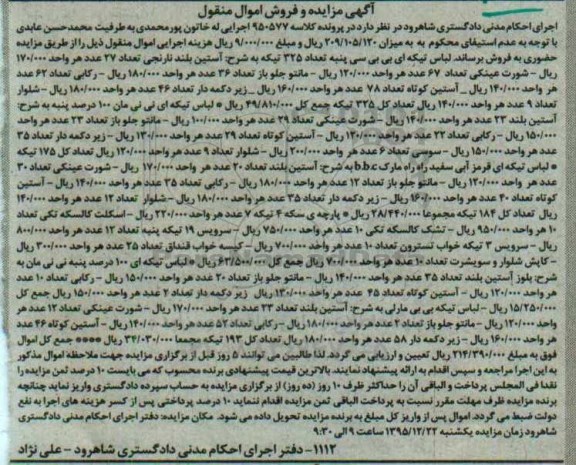 آگهی مزایده و فروش اموال منقول
اجرای احکام مدنی دادگستری شاهرود در نظر دارد در پرونده کلاسه ۹۵۰۵۷۷ اجرایی له خاتون پورمحمدی به طرفیت محمدحسن عابدی
با توجه به عدم استیفای محکوم به به میزان ۲۰۹/۱۰۵/۱۲۰ ریال و مبلغ ۹/۰۰۰/۰۰۰ ریال هزینه اجرایی اموال منقول ذیل را از طریق مزایده
حضوری به فروش برساند. لباس تیکه ای بی بی سی پنبه تعداد ۳۲۵ تیکه به شرح: آستین بلند نارنجی تعداد ۲۷ عدد هر واحد ۱۷۰/۰۰۰
ریال – شورت عینکی تعداد ۶۷ عدد هر واحد ۱۲۰/۰۰۰ ریال – مانتو جلو باز تعداد ۳۶ عدد هر واحد ۱۸۰/۰۰۰ ریال – رکابی تعداد ۶۲ عدد
هر واحد ۱۴۰/۰۰۰ ریال – آستین کوتاه تعداد ۷۸ عدد هر واحد ۱۶۰/۰۰۰ ریال – زیر دکمه دار تعداد ۴۶ عدد هر واحد ۱۸۰/۰۰۰ ریال – شلوار
تعداد ۹ عدد هر واحد ۱۴۰/۰۰۰ ریال تعداد کل ۳۲۵ تیکه جمع کل ۴۹/۸۱۰/۰۰۰ ریال * لباس تیکه ای نی نی مان ۱۰۰ درصد پنبه به شرح:
آستین بلند ۲۳ عدد هر واحد ۱۴۰/۰۰۰ ریال – شورت عینکی تعداد ۲۹ عدد هر واحد ۱۰۰/۰۰۰ ریال – مانتو جلو باز تعداد ۲۳ عدد هر واحد
۱۵۰/۰۰۰ ریال – رکابی تعداد ۲۲ عدد هر واحد ۱۲۰/۰۰۰ ریال – آستین کوتاه تعداد ۲۹ عدد هر واحد ۱۳۰/۰۰۰ ریال – زیر دکمه دار تعداد ۳۵
عدد هر واحد ۱۵۰/۰۰۰ ریال – سوسی تعداد ۶ عدد هر واحد ۲۰۰/۰۰۰ ریال – شلوار تعداد ۹ عدد هر واحد ۱۲۰/۰۰۰ ریال تعداد کل ۱۷۵ تیکه
* لباس تیکه ای قرمز آبی سفید راه راه مارک b.b.c به شرح: آستین بلند تعداد ۲۰ عدد هر واحد ۱۷۰/۰۰۰ ریال – شورت عینکی تعداد ۳۰
عدد هر واحد ۱۲۰/۰۰۰ ریال – مانتو جلو باز تعداد ۱۲ عدد هر واحد ۱۸۰/۰۰۰ ریال – رکابی تعداد ۳۵ عدد هر واحد ۱۴۰/۰۰۰ ریال – آستین
کوتاه تعداد ۴۰ عدد هر واحد ۱۶۰/۰۰۰ ریال – زیر دکمه دار تعداد ۳۵ عدد هر واحد ۱۸۰/۰۰۰ ریال – شلوار تعداد ۱۲ عدد هر واحد ۱۴۰/۰۰۰
ریال تعداد کل ۱۸۴ تیکه مجموعا ۲۸/۴۴۰/۰۰۰ ریال * پارچه ی سکه ۴ تیکه ۷ عدد هر واحد ۲۲۰/۰۰۰ ریال – اسکلت کالسکه تکی تعداد
۱۰ هر واحد ۹۵۰/۰۰۰ ریال – تشک کالسکه تکی ۱۰ عدد هر واحد ۷۵۰/۰۰۰ ریال – سرویس ۱۹ تیکه پنبه تعداد ۱۲ عدد هر واحد ۸۰۰/۰۰۰
ریال – سرویس ۳ تیکه خواب تسترون تعداد ۱۰ عدد هر واحد ۷۰۰/۰۰۰ ریال – کیسه خواب قنداق تعداد ۲۵ عدد هر واحد ۳۰۰/۰۰۰ ریال
– کاپش شلوار و سویشرت تعداد ۱۰ عدد هر واحد ۷۰۰/۰۰۰ ریال جمع کل ۶۳/۵۰۰/۰۰۰ ریال * لباس تیکه ای ۱۰۰ درصد پنبه نی نی مان به
شرح: بلوز آستین بلند تعداد ۳۵ عدد هر واحد ۱۴۰/۰۰۰ ریال – مانتو جلو باز تعداد ۲۰ عدد هر واحد ۱۵۰/۰۰۰ ریال – رکابی تعداد ۱۰ عدد
هر واحد ۱۲۰/۰۰۰ ریال – آستین کوتاه تعداد ۴۵ عدد هر واحد ۱۳۰/۰۰۰ ریال زیر دکمه دار تعداد ۲ عدد هر واحد ۱۵۰/۰۰۰ ریال جمع کل
۱۵/۲۵۰/۰۰۰ ریال – لباس تیکه بی بی مارلی به شرح: آستین بلند تعداد ۲۳ عدد هر واحد ۱۷۰/۰۰۰ ریال – شورت عینکی تعداد ۱۲ عدد هر
واحد ۱۲۰/۰۰۰ ریال – مانتو جلو باز تعداد ۲ عدد هر واحد ۱۸۰/۰۰۰ ریال – رکابی تعداد ۵۲ عدد هر واحد ۱۴۰/۰۰۰ ریال – آستین کوتاه ۴۶ عدد
هر واحد ۱۶۰/۰۰۰ ریال – زیر دکمه دار ۵۸ عدد هر واحد ۱۸۰/۰۰۰ ریال تعداد کل ۱۹۳ تیکه مجمعا ۳۴/۰۳۰/۰۰۰ ریال **** جمع کل اموال
فوق به مبلغ ۲۱۴/۳۹۰/۰۰۰ ریال تعیین و ارزیابی می گردد. لذا طالبین می توانند ۵ روز قبل از برگزاری مزایده جهت ملاحظه اموال مذکور
به این اجرا مراجعه و سپس اقدام به ارائه پیشنهاد نمایند. بالاترین قیمت پیشنهادی برنده محسوب که می بایست ۱۰ درصد ثمن مزایده را
نقدا فی المجلس پرداخت و الباقی آن را حداکثر ظرف ۱۰ روز (ده روز) از برگزاری مزایده به حساب سپرده دادگستری واریز نماید چنانچه
برنده مزایده ظرف مهلت مقرر نسبت به پرداخت الباقی ثمن مزایده اقدام ننماید ۱۰ درصد پرداختی پس از کسر هزینه های اجرا به نفع
دولت ضبط می گردد. اموال پس از واریز کل مبلغ به برنده مزایده تحویل داده می شود. مکان مزایده: دفتر اجرای احکام مدنی دادگستری
شاهرود زمان مزایده یکشنبه ۱۳۹۵/۱۲/۲۲ ساعت ۹ الی ۹:۳۰
۱۱۱۲ – دفتر اجرای احکام مدنی دادگستری شاهرود – علی نژاد